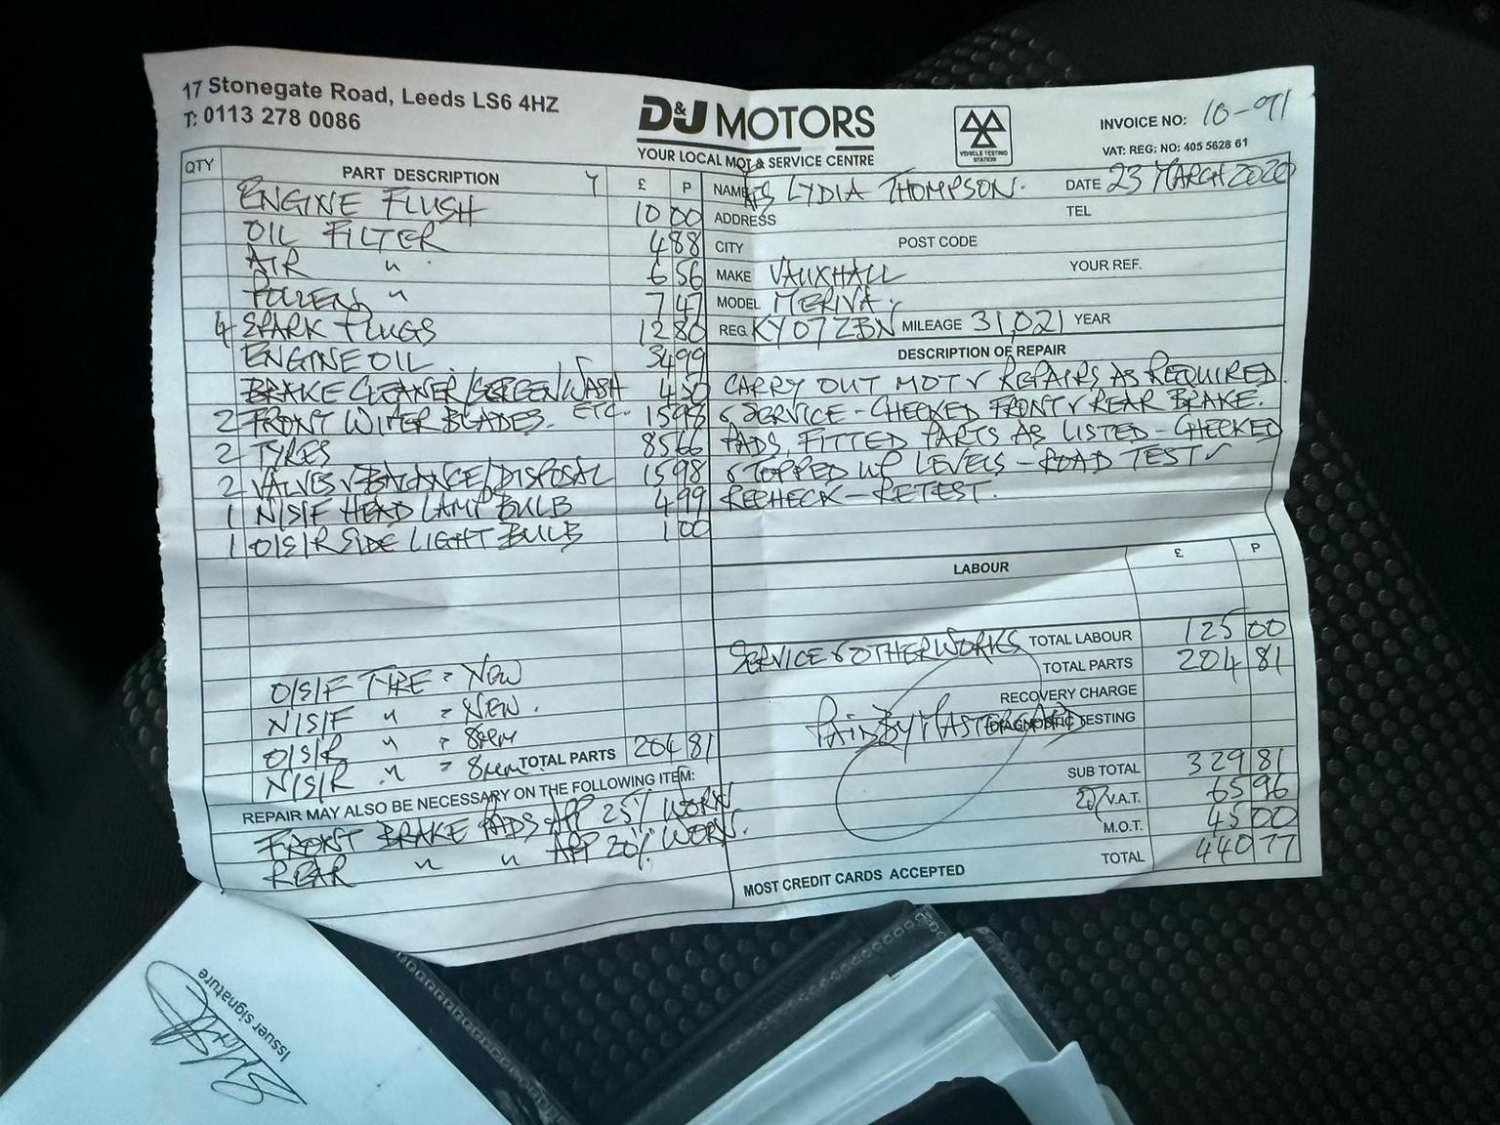 17 Stonegate Road, Leeds LS6 4HZ
T: 0113 278 0086
D&J MOTORS
YOUR LOCAL MOT & SERVICE CENTRE
VEHICLE TESTING STATION
INVOICE NO: 10-91
VAT: REG: NO: 405 5628 61
QTY PART DESCRIPTION £ P
ENGINE FLUSH 10 00
OIL FILTER 4 88
AIR " 6 56
POLLEN " 7 47
4 SPARK PLUGS 12 80
ENGINE OIL. 34 99
BRAKE CLEANER/SCREEN/WASH ETC. 4 50
2 FRONT WIPER BLADES. 15 98
2 TYRES 85 66
2 VALVES & BALANCE/DISPOSAL 15 98
1 N/S/F HEAD LAMP BULB 4 99
1 O/S/R SIDE LIGHT BULB 1 00
O/S/F TYRE = NEW
N/S/F " = NEW.
O/S/R " = 8mm
N/S/R " = 8mm.
TOTAL PARTS 204 81
REPAIR MAY ALSO BE NECESSARY ON THE FOLLOWING ITEM:
FRONT BRAKE PADS APP 25% WORN.
REAR " " APP 20% WORN.
NAME LYDIA THOMPSON. DATE 23 MARCH 2020
ADDRESS TEL
CITY POST CODE
MAKE VAUXHALL YOUR REF.
MODEL MERIVA
REG. KY07ZBN MILEAGE 31,021 YEAR
DESCRIPTION OF REPAIR
CARRY OUT MOT & REPAIRS AS REQUIRED.
& SERVICE - CHECKED FRONT & REAR BRAKE.
PADS, FITTED PARTS AS LISTED - CHECKED
& TOPPED UP LEVELS - ROAD TEST &
RECHECK - RETEST.
LABOUR £ P
SERVICE & OTHER WORKS TOTAL LABOUR 125 00
TOTAL PARTS 204 81
RECOVERY CHARGE
PAID BY MASTERCARD DIAGNOSTIC TESTING
SUB TOTAL 329 81
20% V.A.T. 65 96
M.O.T. 45 00
TOTAL 440 77
MOST CREDIT CARDS ACCEPTED
Issuer signature